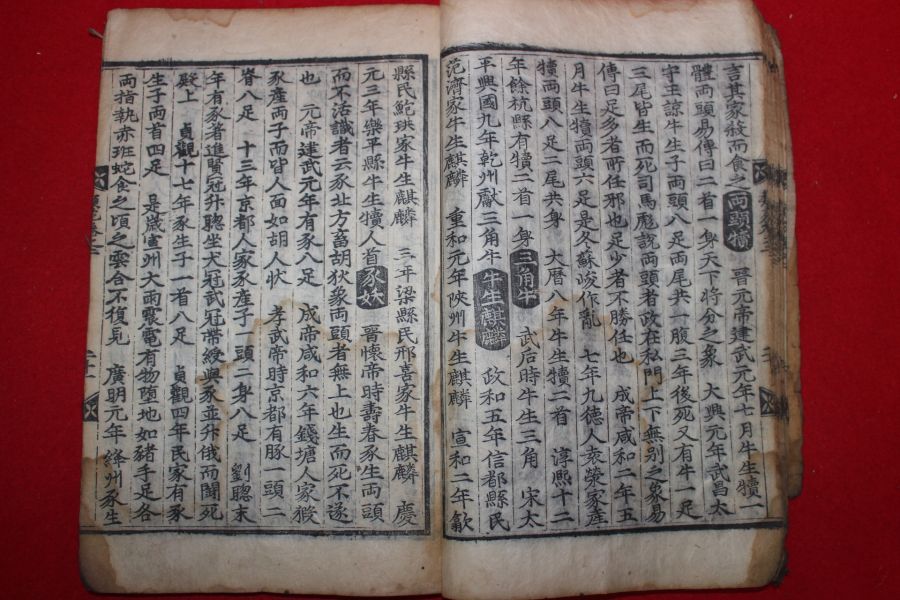 言其家殺而食之 兩頭犢 晉元帝建武元年七月牛生犢一
體兩頭易傳曰二首一身天下將分之象 大興元年武昌太
守王諒牛生子兩頭八足兩尾共一腹三年後死又有牛一足
三尾皆生而死司馬彪說兩頭者政在私門上下無別之象易
傳曰足多者所任邪也足少者不勝任也 成帝咸和二年五
月牛生犢兩頭六足是冬蘇峻作亂 七年九德人袁榮家產
犢兩頭八足二尾共身 大曆八年牛生犢二首 淳熈十二
年餘杭縣有犢二首一身 三角牛 武后時牛生三角 宋太
平興國九年乾州獻三角牛 牛生麒麟 政和五年信都縣民
范濟家牛生麒麟 重和元年陝州牛生麒麟 宣和二年歙
縣民鮑珙家牛生麒麟 三年梁縣民邢喜家牛生麒麟 慶
元三年樂平縣牛生犢人首 豕妖 晉懷帝時壽春豕生兩頭
而不活識者云豕北方畜胡狄象兩頭者無上也生而死不遂
也 元帝建武元年有豕八足 成帝咸和六年錢塘人家猳
豕產兩子而皆人面如胡人狀 孝武帝時京都有豚一頭二
脊八足 十三年京都人家豕產子一頭二身八足 劉聦末
年有豕著進賢冠升聦坐犬冠武冠帶綬與豕並升俄而鬬死
殿上 貞觀十七年豕生子一首八足 貞觀四年民家有豕
生子兩首四足 是歲宣州大雨震電有物墮地如豬手足各
兩指執赤班蛇食之頃之雲合不復見 廣明元年絳州豕生